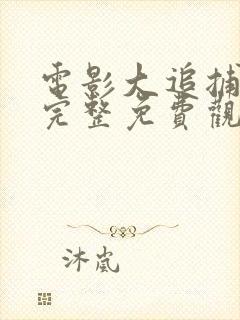 電影大追捕
完整免費觀
沐嵐